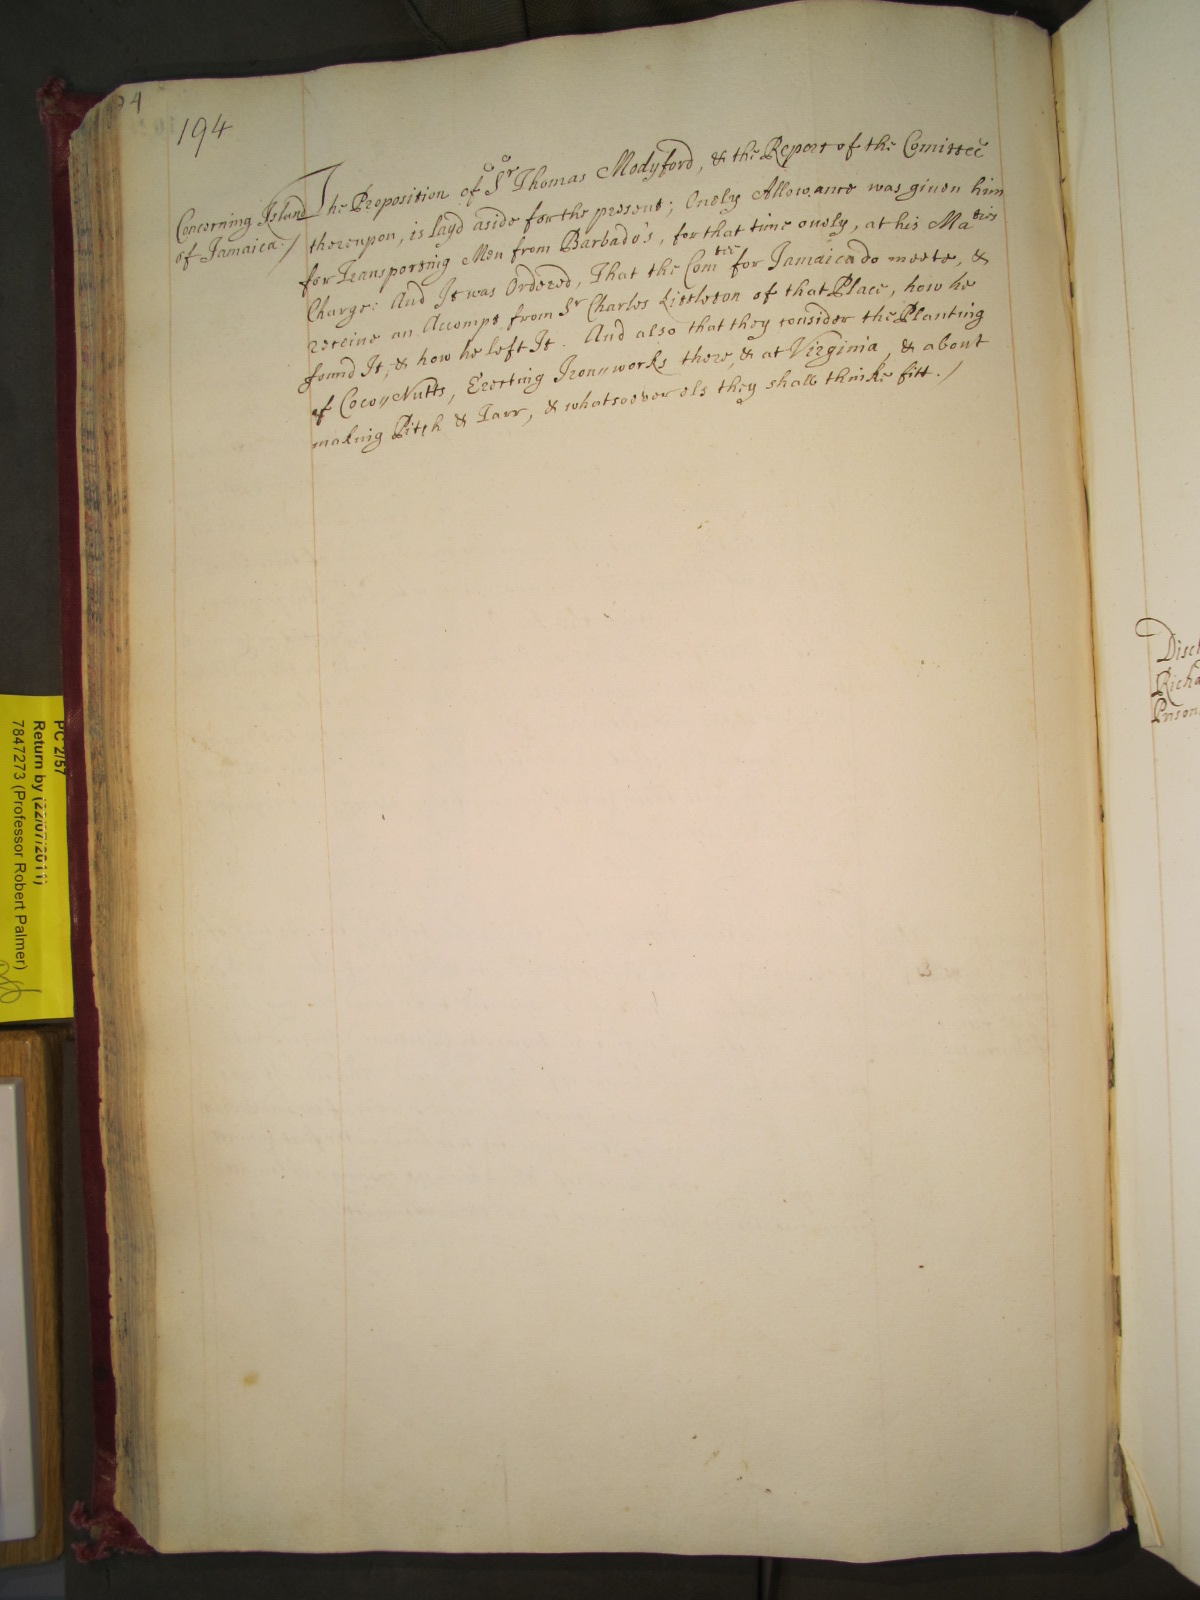 194
Concerning Island
of Jamaica./
The Proposition of Sr Thomas Modyford, & the Report of the Comittee
thereupon, is layd aside for the present; Onely Allowance was giuen him
for Transporting Men from Barbado's, for that time onely, at his Maties
Charge: And It was Ordered, That the Comtee for Jamaica do meete, &
receiue an Accompt from Sr Charles Littleton of that Place, how he
found It, & how he left It. And also that they consider the Planting
of Cocoy Nutts, Erecting Iron works there, & at Virginia, & about
making Pitch & Tarr, & whatsoever els they shall thinke fitt./
PC 2/57
Return by (22/07/2011)
7847273 (Professor Robert Palmer)
Disch
Richa
Prison